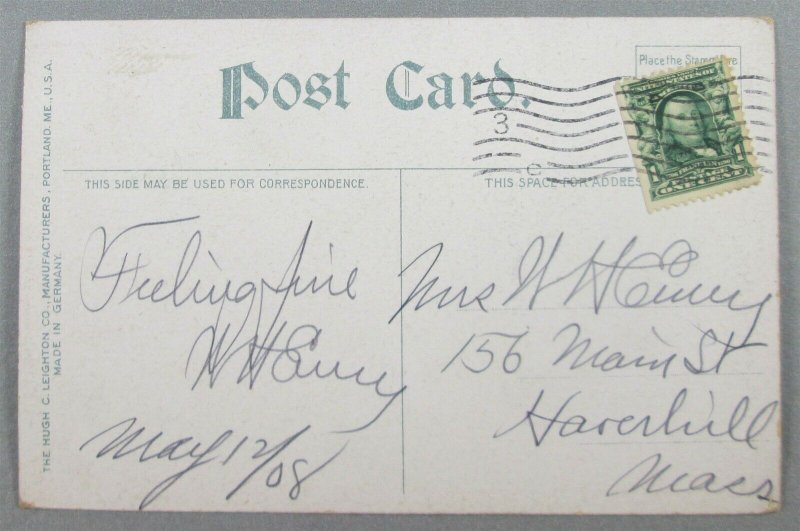 Post Card.
Place the Stamp Here
UNITED STATES OF
FRANKLIN
1 1
ONE CENT
3
C
THIS SIDE MAY BE USED FOR CORRESPONDENCE.
THIS SPACE FOR ADDRESS
THE HUGH C. LEIGHTON CO., MANUFACTURERS, PORTLAND, ME., U.S.A.
MADE IN GERMANY.
Feeling fine
W H Emery
May 12/08
Mrs W H Emery
156 Main St
Haverhill
Mass